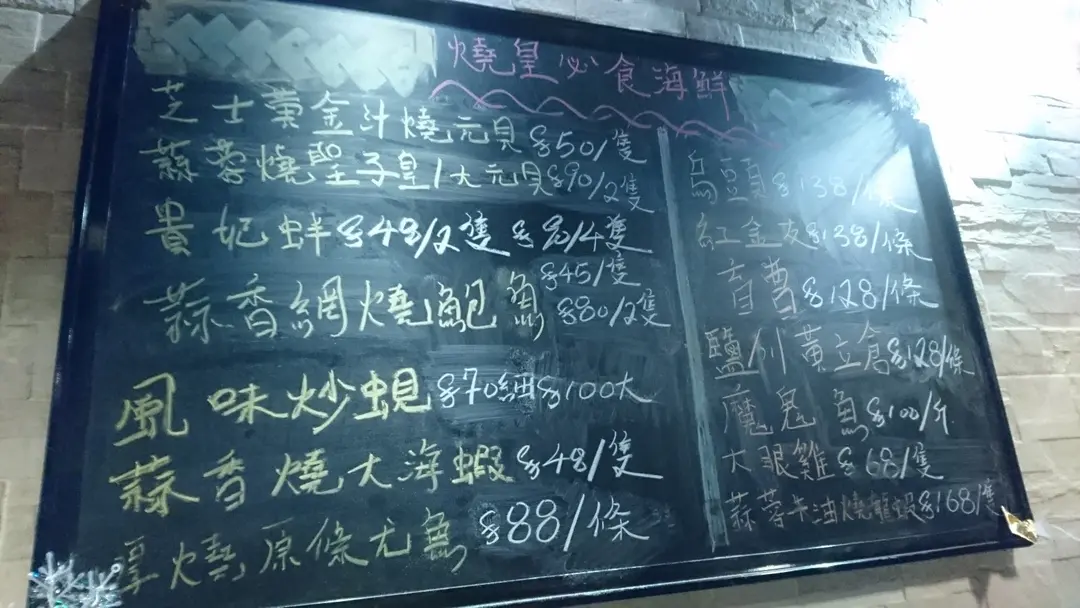 燒皇必食海鮮
芝士黃金汁燒元貝 $50/隻
蒜蓉燒聖子皇/大元貝 $90/2隻
貴妃蚌 $48/2隻 $90/4隻
蒜香網燒鮑魚 $45/隻
$80/2隻
風味炒蜆 $70細 $100大
蒜香燒大海蝦 $48/隻
燒原條尤魚 $88/條
烏頭 $138/條
紅金友 $138/條
盲曹 $128/條
鹽水黃立倉 $128/條
魔鬼魚 $100/斤
大眼雞 $68/隻
蒜蓉牛油燒龍蝦 $168/隻